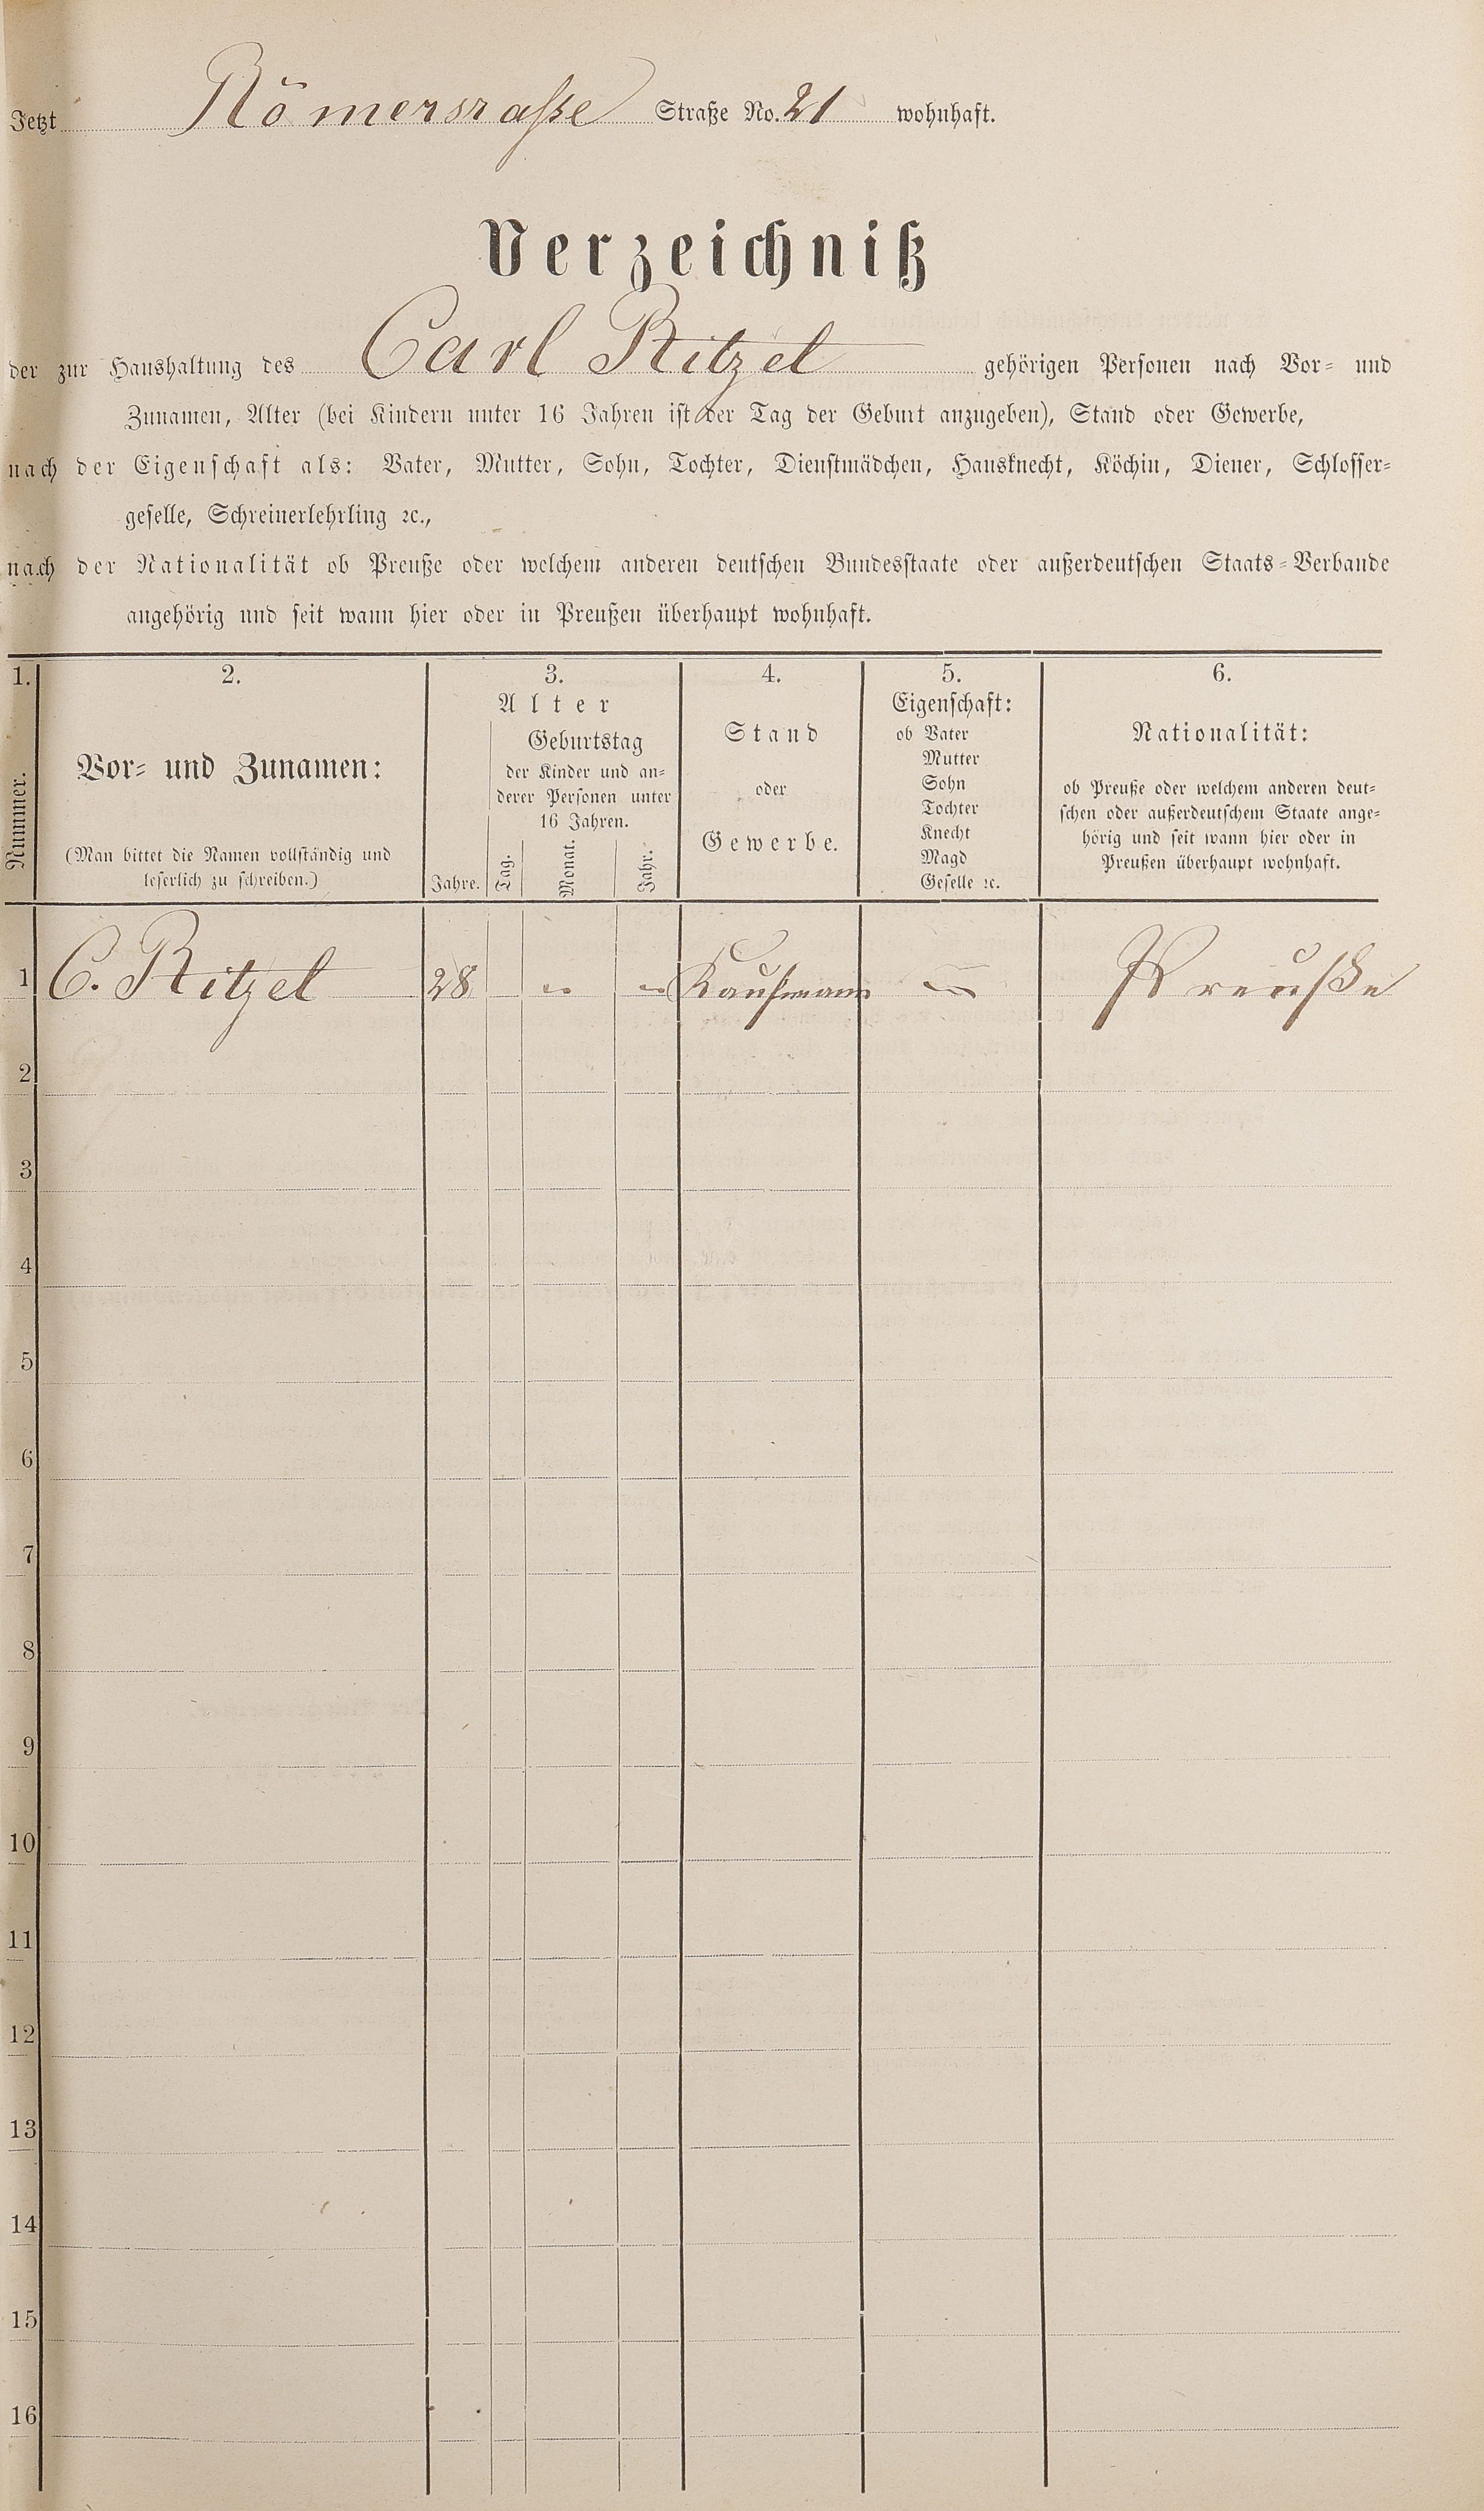 Jetzt Römersraße Straße No. 21 wohnhaft.
Verzeichniß
der zur Haushaltung des Carl Ritzel gehörigen Personen nach Vor- und
Zunamen, Alter (bei Kindern unter 16 Jahren ist der Tag der Geburt anzugeben), Stand oder Gewerbe,
nach der Eigenschaft als: Vater, Mutter, Sohn, Tochter, Dienstmädchen, Hausknecht, Köchin, Diener, Schlosser-
geselle, Schreinerlehrling ꝛc.,
nach der Nationalität ob Preuße oder welchem anderen deutschen Bundesstaate oder außerdeutschen Staats-Verbande
angehörig und seit wann hier oder in Preußen überhaupt wohnhaft.
1.
Nummer.
2.
Vor- und Zunamen:
(Man bittet die Namen vollständig und
leserlich zu schreiben.)
3.
Alter
Jahre.
Geburtstag
der Kinder und an-
derer Personen unter
16 Jahren.
Tag.
Monat.
Jahr.
4.
Stand
oder
Gewerbe.
5.
Eigenschaft:
ob Vater
Mutter
Sohn
Tochter
Knecht
Magd
Geselle ꝛc.
6.
Nationalität:
ob Preuße oder welchem anderen deut-
schen oder außerdeutschem Staate ange-
hörig und seit wann hier oder in
Preußen überhaupt wohnhaft.
1 C. Ritzel 28 " " Kaufmann — Preuße
2
3
4
5
6
7
8
9
10
11
12
13
14
15
16